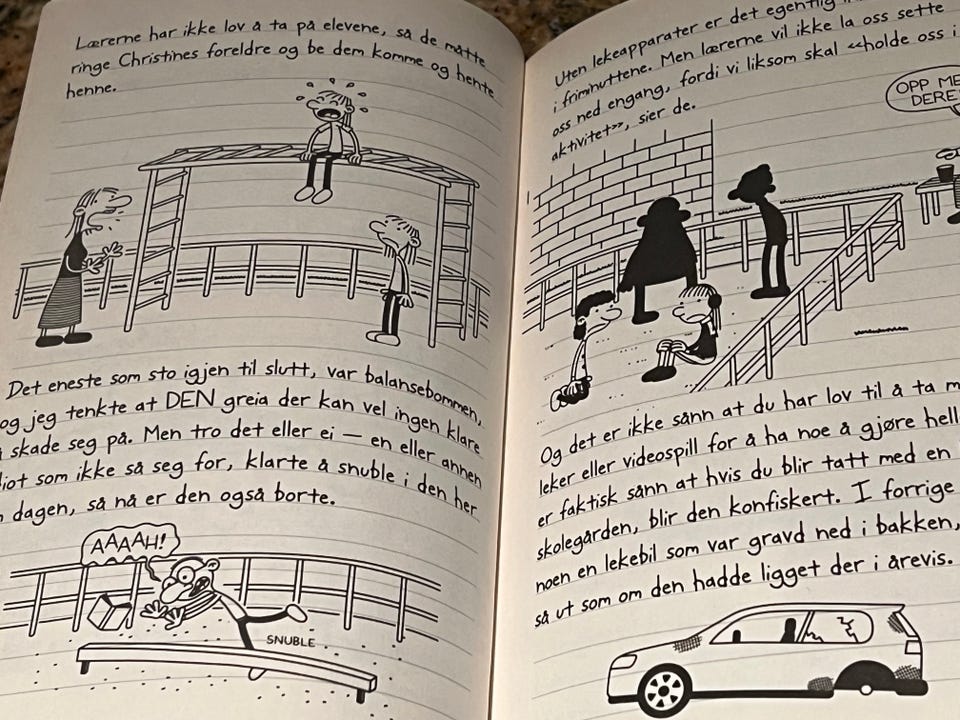 Lærerne har ikke lov å ta på elevene, så de måtte
ringe Christines foreldre og be dem komme og hente
henne.
Det eneste som sto igjen til slutt, var balansebommen,
og jeg tenkte at DEN greia der kan vel ingen klare
å skade seg på. Men tro det eller ei — en eller annen
idiot som ikke så seg for, klarte å snuble i den her
dagen, så nå er den også borte.
AAAAH!
SNUBLE
Uten lekeapparater er det egentlig
i friminuttene. Men lærerne vil ikke la oss sette
oss ned engang, fordi vi liksom skal «holde oss i
aktivitet», sier de.
OPP ME
DERE!
Og det er ikke sånn at du har lov til å ta m
leker eller videospill for å ha noe å gjøre hell
er faktisk sånn at hvis du blir tatt med en
skolegården, blir den konfiskert. I forrige
noen en lekebil som var gravd ned i bakken,
så ut som om den hadde ligget der i årevis.